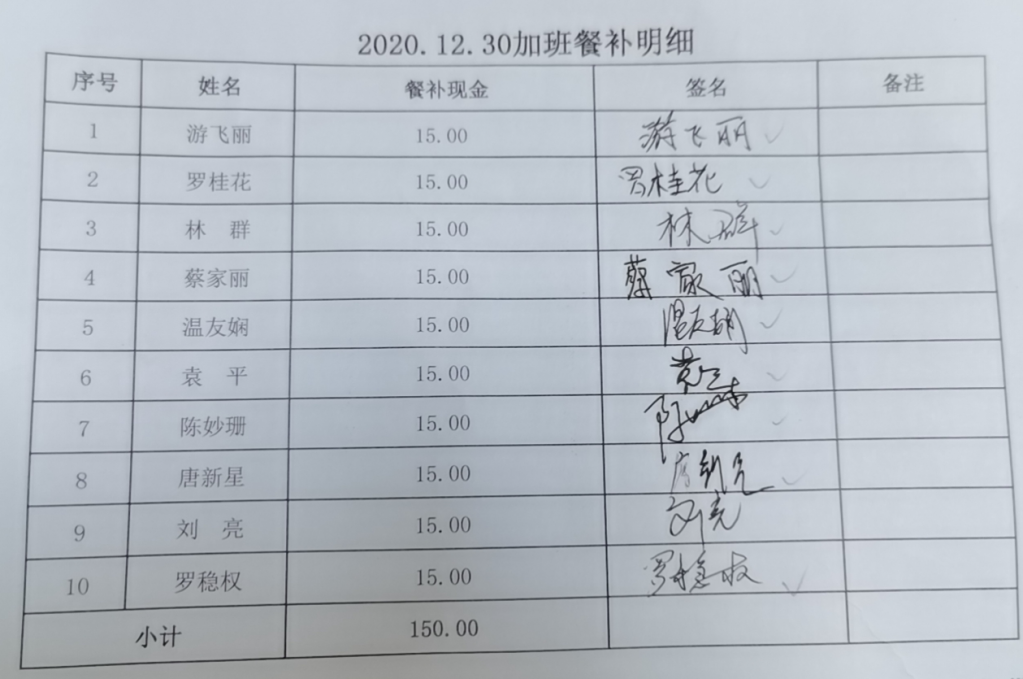 2020.12.30加班餐补明细
序号 姓名 餐补现金 签名 备注
1 游飞丽 15.00 游飞丽
2 罗桂花 15.00 罗桂花
3 林 群 15.00 林群
4 蔡家丽 15.00 蔡家丽
5 温友娴 15.00 温友娴
6 袁 平 15.00
7 陈妙珊 15.00
8 唐新星 15.00 唐新星
9 刘 亮 15.00 刘亮
10 罗稳权 15.00 罗稳权
小计 150.00